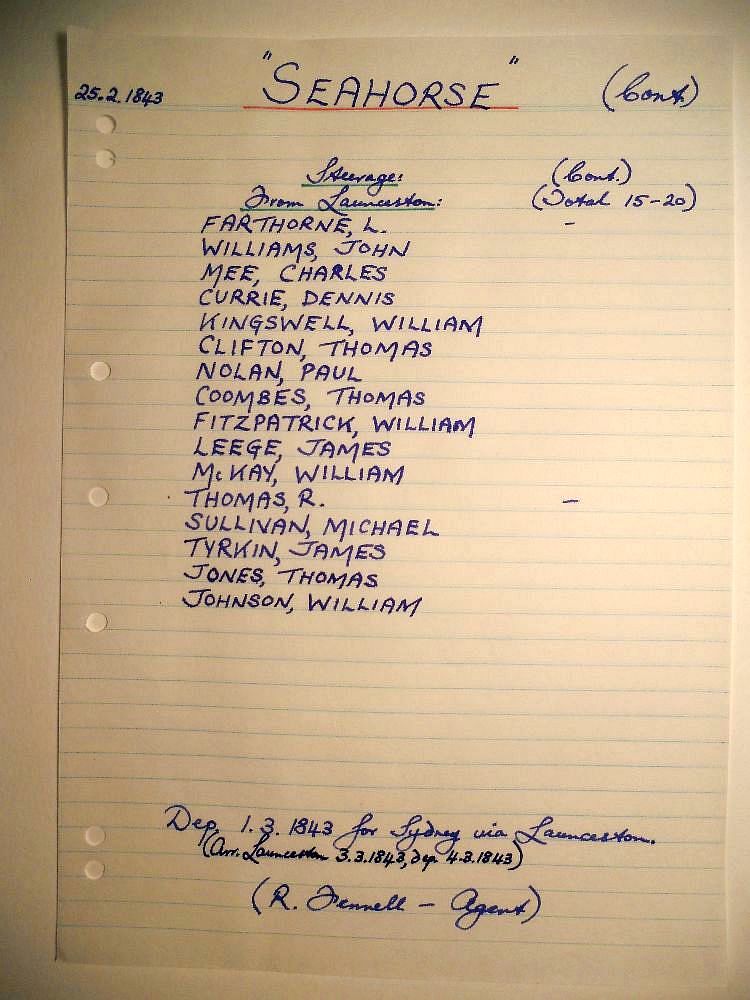 25.2.1843 "SEAHORSE" (Cont.)
Steerage: (Cont.)
From Launceston: (Total 15-20)
FARTHORNE, L. -
WILLIAMS, JOHN
MEE, CHARLES
CURRIE, DENNIS
KINGSWELL, WILLIAM
CLIFTON, THOMAS
NOLAN, PAUL
COOMBES, THOMAS
FITZPATRICK, WILLIAM
LEEGE, JAMES
McKAY, WILLIAM
THOMAS, R. -
SULLIVAN, MICHAEL
TYRKIN, JAMES
JONES, THOMAS
JOHNSON, WILLIAM
Dep. 1.3.1843 for Sydney via Launceston.
(Arr. Launceston 3.3.1843, dep. 4.3.1843)
(R. Fennell - Agent)